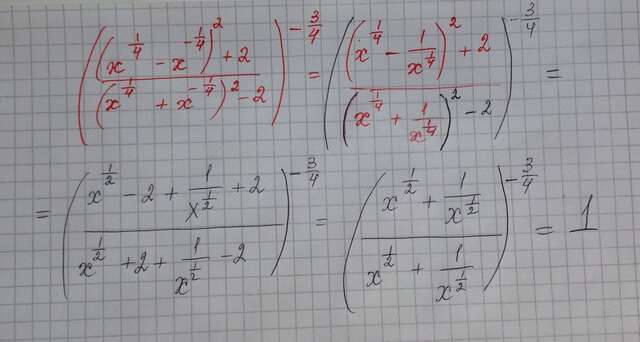 (((x^{1/4} - x^{-1/4})^2 + 2)/((x^{1/4} + x^{-1/4})^2 - 2))^{-3/4} = (((x^{1/4} - 1/x^{1/4})^2 + 2)/((x^{1/4} + 1/x^{1/4})^2 - 2))^{-3/4} =
= ((x^{1/2} - 2 + 1/x^{1/2} + 2)/(x^{1/2} + 2 + 1/x^{1/2} - 2))^{-3/4} = ((x^{1/2} + 1/x^{1/2})/(x^{1/2} + 1/x^{1/2}))^{-3/4} = 1